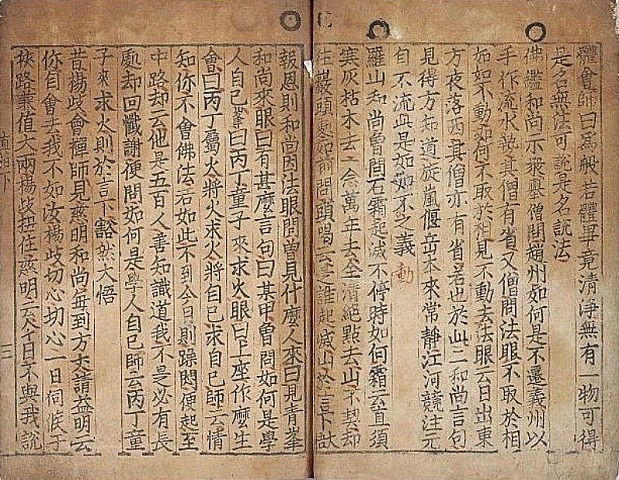 體會師曰爲般若體畢竟清淨無有一物可得
是名無法可說是名說法
佛鑑和尚示衆擧僧問趙州如何是不遷義州以
手作流水勢其僧有省又僧問法眼不取於相
如如不動如何不取於相見不動去法眼云日出東
方夜落西其僧亦有省若也於此二和尚言句
見得方知道旋嵐偃岳本來常靜江河競注元
自不流如是如如不動之義
羅山和尚曾問石霜起滅不停時如何霜云直須
寒灰枯木去一念萬年去全清絶點去山不契却
往巖頭處如前問頭喝云是誰起滅山於言下
報恩則和尚因法眼問曾見什麽人來曰見青峯
和尚來眼曰有甚麽言句曰某甲曾問如何是學
人自己峯曰丙丁童子來求火眼曰上座作麽生
會曰丙丁屬火將火求火將自己求自己師云情
知你不會佛法若如此不到今日則躁悶便起至
中路却云他是五百人善知識道我不是必有長
處却回懺謝便問如何是學人自己師云丙丁童
子來求火則於言下豁然大悟
昔楊歧會禪師見慈明和尚每到方丈請益明云
你自會去我不如汝楊歧切心切心一日伺候于
狹路兼值大雨楊歧扭住慈明云今日不與我說
直指下
三